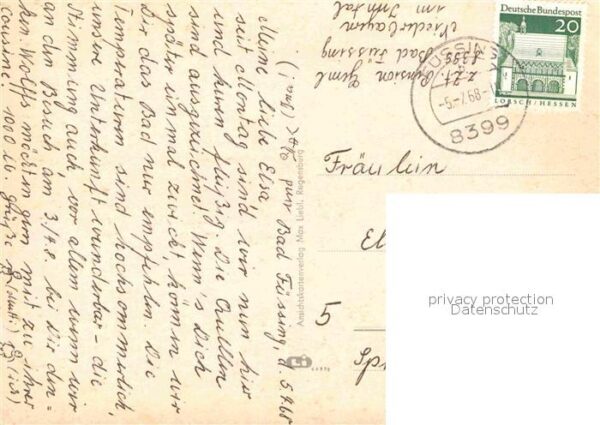 z.Zt. Pension Geml
8399 Bad Füssing
Niederbayern
im Inntal
Deutsche Bundespost
20
LORSCH/HESSEN
FÜSSING
-5.-7.68-
8399
Bad Füssing, d. 5.7.68
Meine liebe Elsa
seit Montag sind wir nun hier
und kuren fleißig. Die Quellen
sind ausgezeichnet. Wenn's Dich
später einmal zwickt, können wir
Dir das Bad nur empfehlen. Die
Temperaturen sind hochsommerlich,
unsere Unterkunft wunderbar - die
Stimmung auch, vor allem wenn wir
an den Besuch am 3./4.8. bei Dir den=
ken. Wolffs möchten gern mit zu ihrer
Cousine! 1000 lb. Grüße
Ansichtskartenverlag Max Liebl, Regensburg
Li
Fräulein
El
5
Sp
privacy protection
Datenschutz